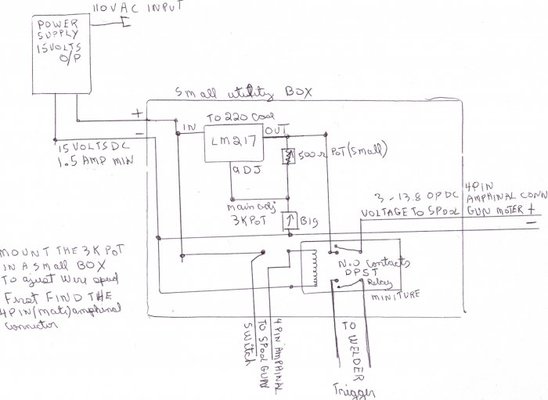 110VAC INPUT
POWER
SUPPLY
15VOLTS
O/P
small utility BOX
+
-
TO 220 Case
IN
LM217
OUT
ADJ
500Ω POT (small)
15 VOLTS DC
1.5 AMP MIN
main adj
3K POT
BIG
3-13.8 OP DC
VOLTAGE TO SPOOL
4 PIN
AMPHINAL CONN
GUN MOTER +
-
MOUNT THE 3K POT
IN A small BOX
TO ajust wire speed
First FIND THE
4 PIN (mate) amphenal
connector
N.O Contacts
DPST
Relay
MINITURE
4 PIN AMPHINAL
TO SPOOL GUN
Switch
TO WELDER
Trigger